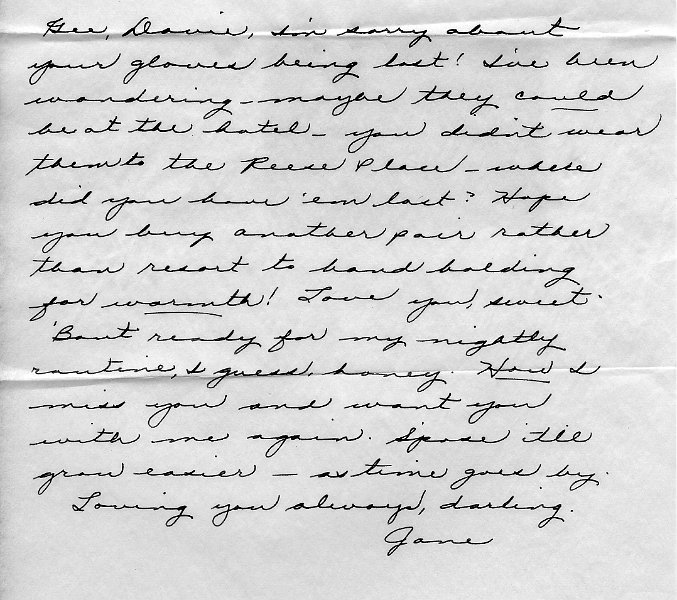 Gee, Davie, I'm sorry about
your gloves being lost! I've been
wondering - maybe they could
be at the hotel - you didn't wear
them to the Reese Place - where
did you have 'em last? Hope
you buy another pair rather
than resort to hand holding
for warmth! Love you, sweet.
'Bout ready for my nightly
routine, I guess, honey. How I
miss you and want you
with me again. S'pose 'til
grow easier - as time goes by.
Loving you always, darling.
Jane